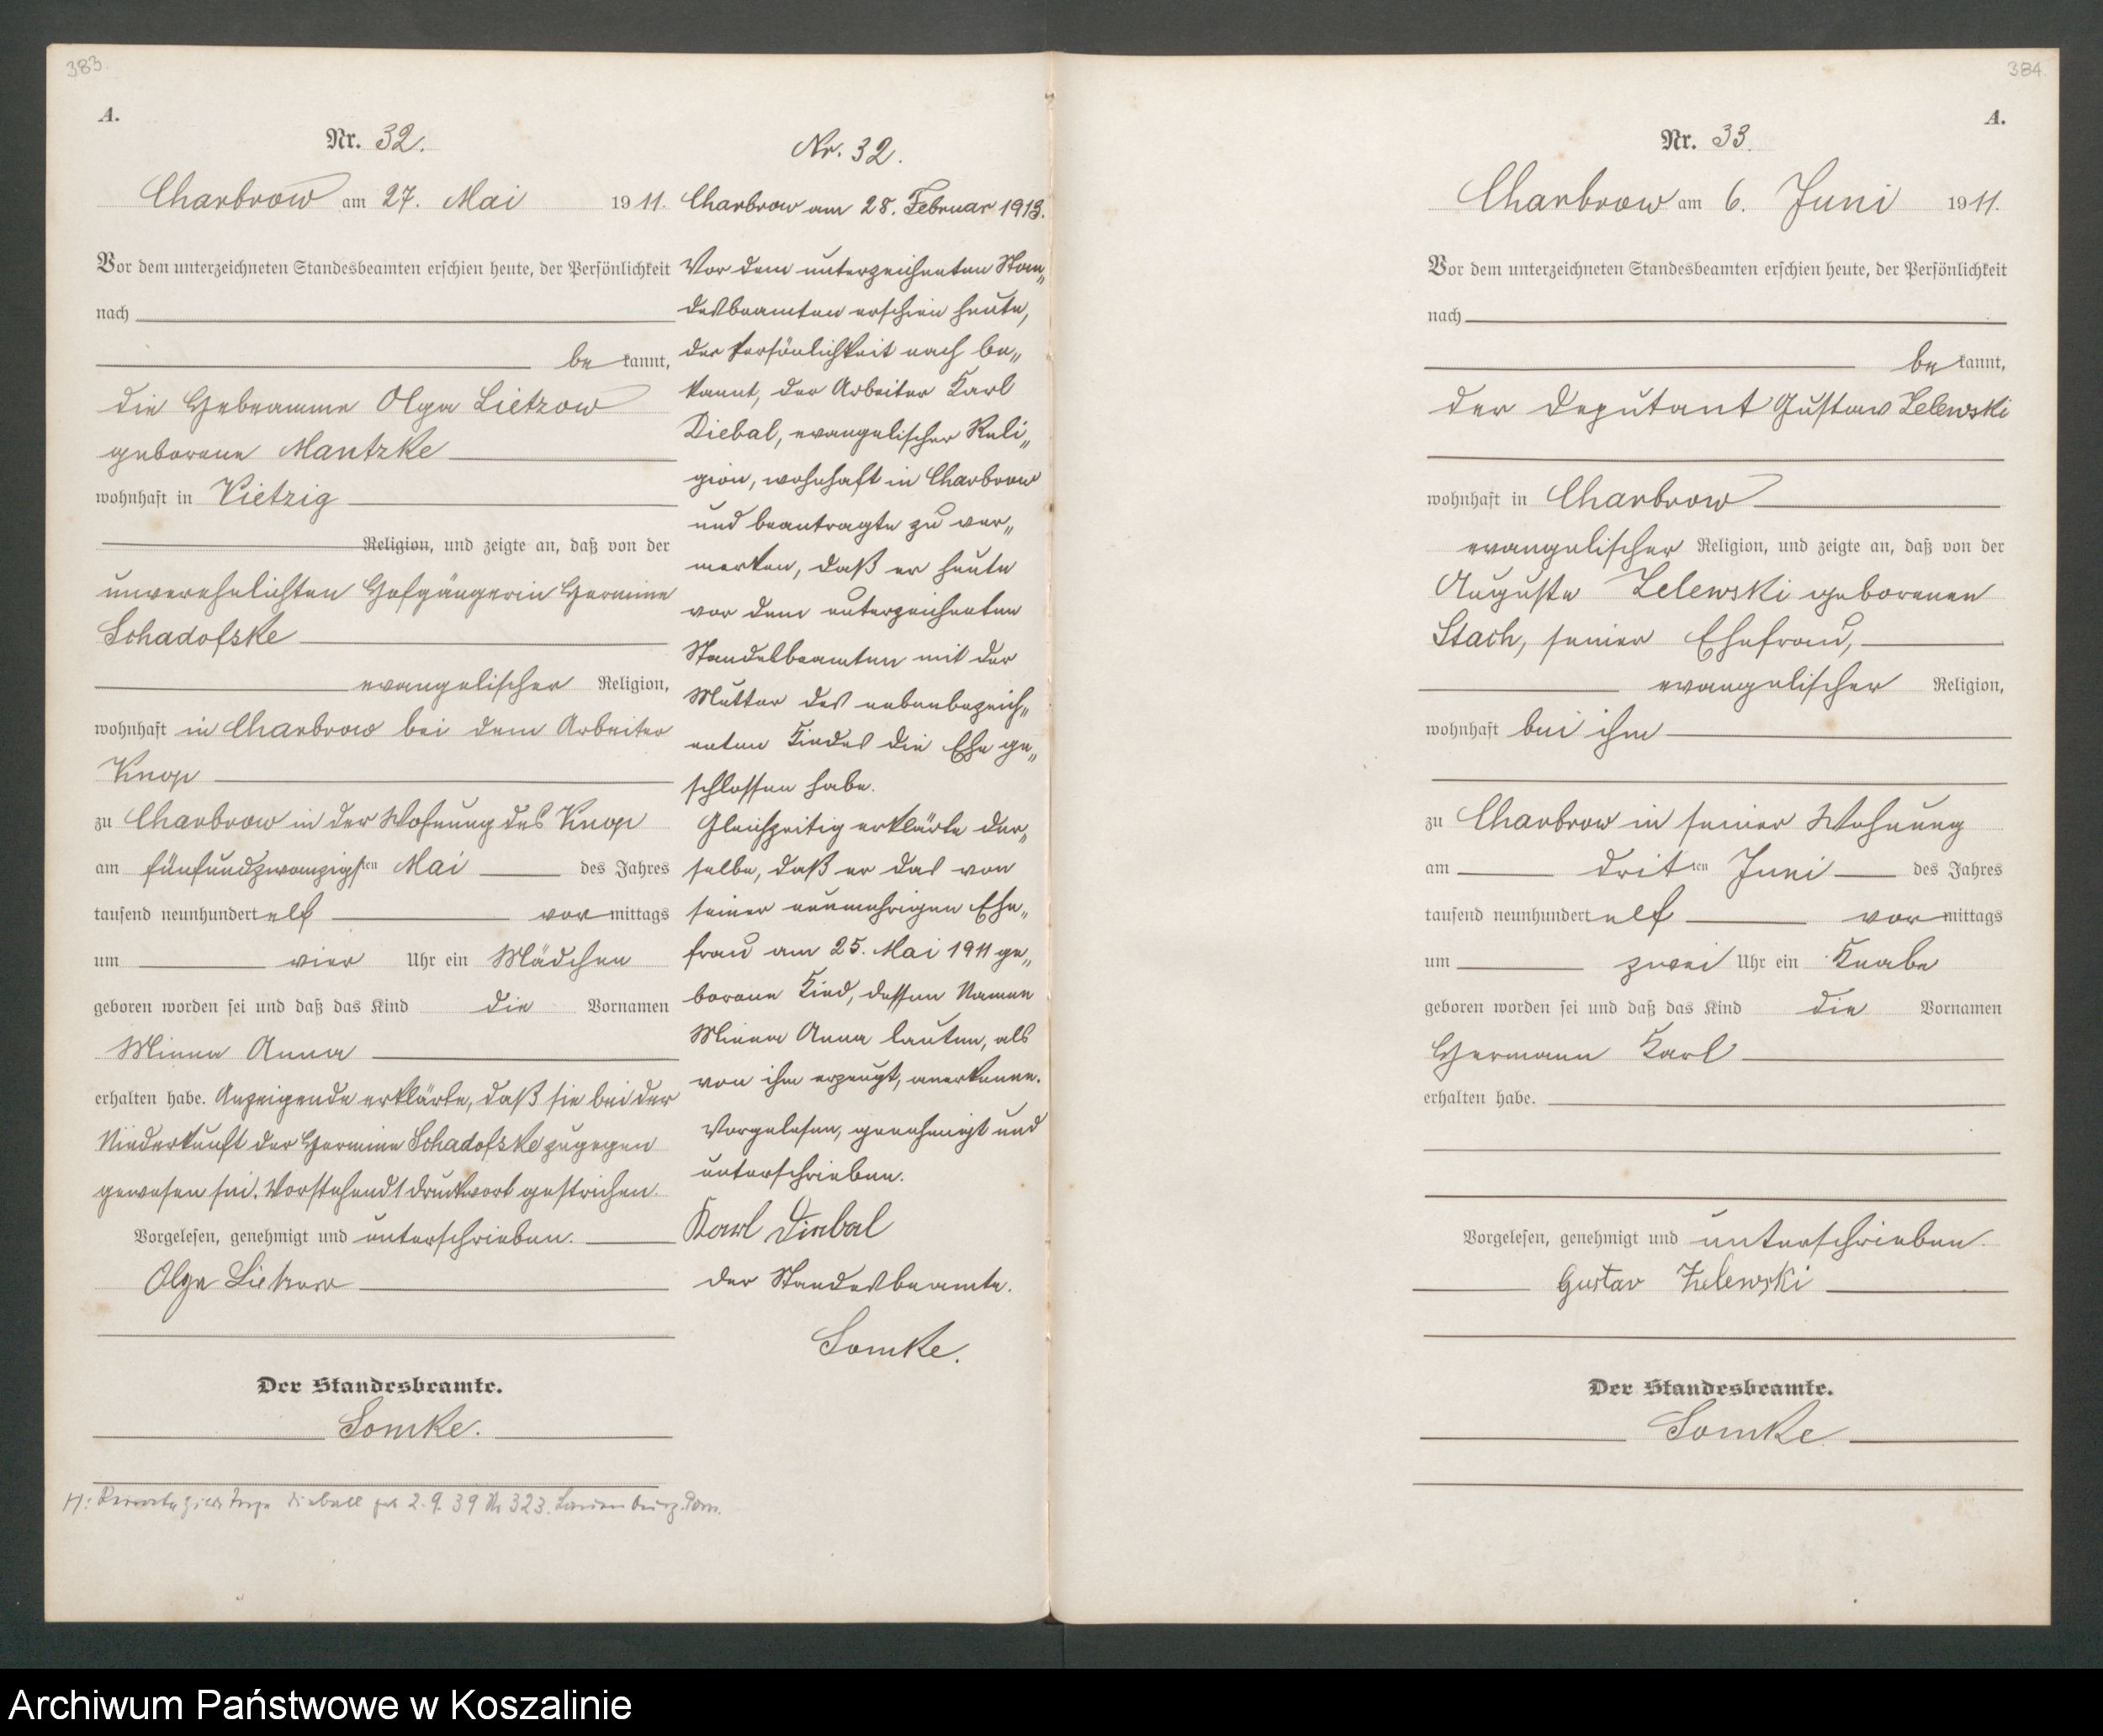 383.
A.
Nr. 32.
Charbrow am 27. Mai 1911.
Vor dem unterzeichneten Standesbeamten erschien heute, der Persönlichkeit
nach
be kannt,
die Hebeamme Olga Lietzow
geborene Mantzke
wohnhaft in Vietzig
Religion, und zeigte an, daß von der
unverehelichten Hofgängerin Hermine
Schadofske
evangelischer Religion,
wohnhaft in Charbrow bei dem Arbeiter
Knop
zu Charbrow in der Wohnung des Knop
am fünfundzwanzigsten Mai des Jahres
tausend neunhundert elf vor mittags
um vier Uhr ein Mädchen
geboren worden sei und daß das Kind die Vornamen
Minna Anna
erhalten habe. Anzeigende erklärte, daß sie bei der
Niederkunft der Hermine Schadofske zugegen
gewesen sei. Vorstehend 1 Druckwort gestrichen.
Vorgelesen, genehmigt und unterschrieben.
Olga Lietzow
Der Standesbeamte.
Somke.
H: 2. 9. 39 Nr 323. Lauenburg. Pom.
Nr. 32.
Charbrow am 28. Februar 1913.
Vor dem unterzeichneten Stan„
desbeamten erschien heute,
der Persönlichkeit nach be„
kannt, der Arbeiter Karl
Diebal, evangelischer Reli„
gion, wohnhaft in Charbrow
und beantragte zu ver„
merken, daß er heute
vor dem unterzeichneten
Standesbeamten mit der
Mutter des nebenbezeich„
neten Kindes die Ehe ge„
schlossen habe.
Gleichzeitig erklärte der„
selbe, daß er das von
seiner nunmehrigen Ehe„
frau am 25. Mai 1911 ge„
borene Kind, dessen Namen
Minna Anna lauten, als
von ihm erzeugt, anerkenne.
Vorgelesen, genehmigt und
unterschrieben.
Karl Diebal
Der Standesbeamte.
Somke.
384.
A.
Nr. 33.
Charbrow am 6. Juni 1911.
Vor dem unterzeichneten Standesbeamten erschien heute, der Persönlichkeit
nach
be kannt,
der Deputant Gustav Zelewski
wohnhaft in Charbrow
evangelischer Religion, und zeigte an, daß von der
Auguste Zelewski geborenen
Stach, seiner Ehefrau,
evangelischer Religion,
wohnhaft bei ihm
zu Charbrow in seiner Wohnung
am dritten Juni des Jahres
tausend neunhundert elf vor mittags
um zwei Uhr ein Knabe
geboren worden sei und daß das Kind die Vornamen
Hermann Karl
erhalten habe.
Vorgelesen, genehmigt und unterschrieben.
Gustav Zelewski
Der Standesbeamte.
Somke
Archiwum Państwowe w Koszalinie